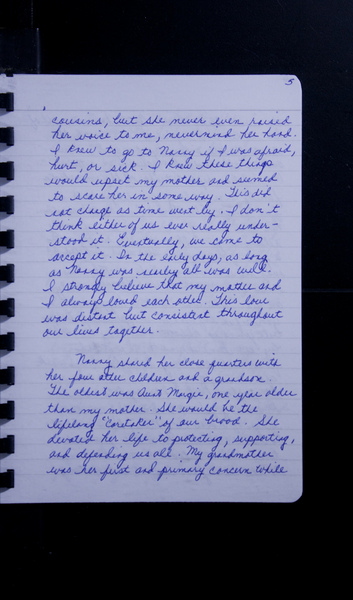 5
cousins, but she never even raised
her voice to me, nevermind her hand.
I knew to go to Nanny if I was afraid,
hurt, or sick. I knew these things
would upset my mother and seemed
to scare her in some way. This did
not change as time went by. I don't
think either of us ever really under-
stood it. Eventually, we came to
accept it. In the early days, as long
as Nanny was nearby all was well.
I strongly believe that my mother and
I always loved each other. This love
was distant but consistent throughout
our lives together.
Nanny shared her close quarters with
her four other children and a grandson.
The oldest was Aunt Margie, one year older
than my mother. She would be the
lifelong "caretaker" of our brood. She
devoted her life to protecting, supporting,
and defending us all. My grandmother
was her first and primary concern while